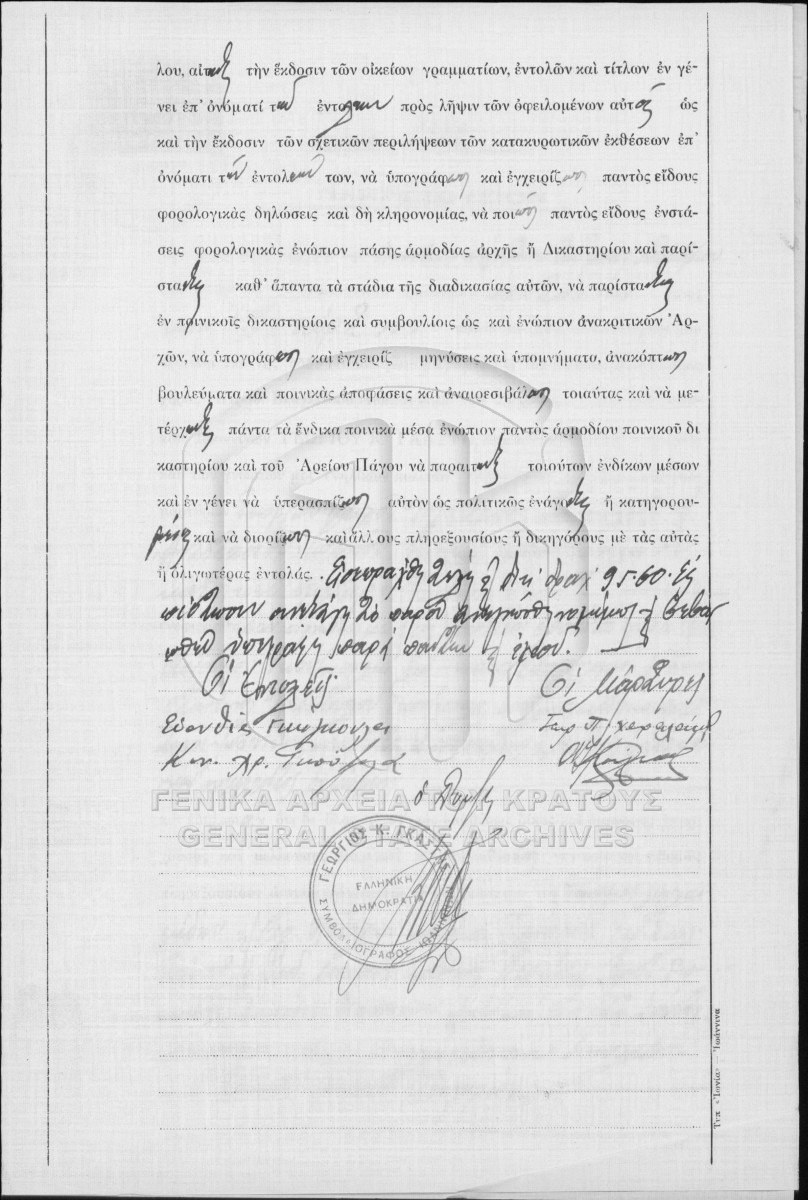 λου, αἰτ την ἔκδοσιν τῶν οἰκείων γραμματίων, ἐντολῶν καὶ τίτλων ἐν γέ-
νει ἐπ' ὀνόματί τῶν ἐντολέων πρὸς λῆψιν τῶν ὀφειλομένων αὐτοῖς ὡς
καὶ τὴν ἔκδοσιν τῶν σχετικῶν περιλήψεων τῶν κατακυρωτικῶν ἐκθέσεων ἐπ'
ὀνόματι τῶν ἐντολέων των, νὰ ὑπογράφῃ καὶ ἐγχειρίζῃ παντὸς εἴδους
φορολογικὰς δηλώσεις καὶ δὴ κληρονομίας, νὰ ποιῇ παντὸς εἴδους ἐνστά-
σεις φορολογικὰς ἐνώπιον πάσης ἁρμοδίας ἀρχῆς ἤ Δικαστηρίου καὶ παρί-
στα καθ' ἅπαντα τὰ στάδια τῆς διαδικασίας αὐτῶν, νὰ παρίστα
ἐν ποινικοῖς δικαστηρίοις καὶ συμβουλίοις ὡς καὶ ἐνώπιον ἀνακριτικῶν Ἀρ-
χῶν, νὰ ὑπογράφ καὶ ἐγχειρίζ μηνύσεις καὶ ὑπομνήματα, ἀνακόπτ
βουλεύματα καὶ ποινικὰς ἀποφάσεις καὶ ἀναιρεσιβάλ τοιαύτας καὶ νὰ με-
τέρχ πάντα τὰ ἔνδικα ποινικὰ μέσα ἐνώπιον παντὸς ἁρμοδίου ποινικοῦ δι
καστηρίου καὶ τοῦ Ἀρείου Πάγου νὰ παραιτ τοιούτων ἐνδίκων μέσων
καὶ ἐν γένει νὰ ὑπερασπίζ αὐτὸν ὡς πολιτικῶς ἐνάγ ἤ κατηγορου-
καὶ νὰ διορίζ καὶ ἄλλους πληρεξουσίους ἤ δικηγόρους μὲ τὰς αὐτὰς
ἤ ὀλιγωτέρας ἐντολάς. δραχ 9560. Εἰς
πίστωσιν συνετάγη τὸ παρὸν νομίμως βεβαι
ὑπεγράφη παρὰ πάντων ἐμοῦ.
Οἱ Ἐντολεῖς Οἱ Μάρτυρες
Κων. Χρ.
ὁ Συμβ
ΓΕΝΙΚΑ ΑΡΧΕΙΑ ΤΟΥ ΚΡΑΤΟΥΣ
GENERAL STATE ARCHIVES
ΓΕΩΡΓΙΟΣ Κ. ΓΚΑΣΤΗΣ
ΕΛΛΗΝΙΚΗ
ΔΗΜΟΚΡΑΤΙΑ
ΣΥΜΒΟΛΑΙΟΓΡΑΦΟΣ ΙΩΑΝΝΙΝΩΝ
Τυπ «Ἰονία» — Ἰωάννινα